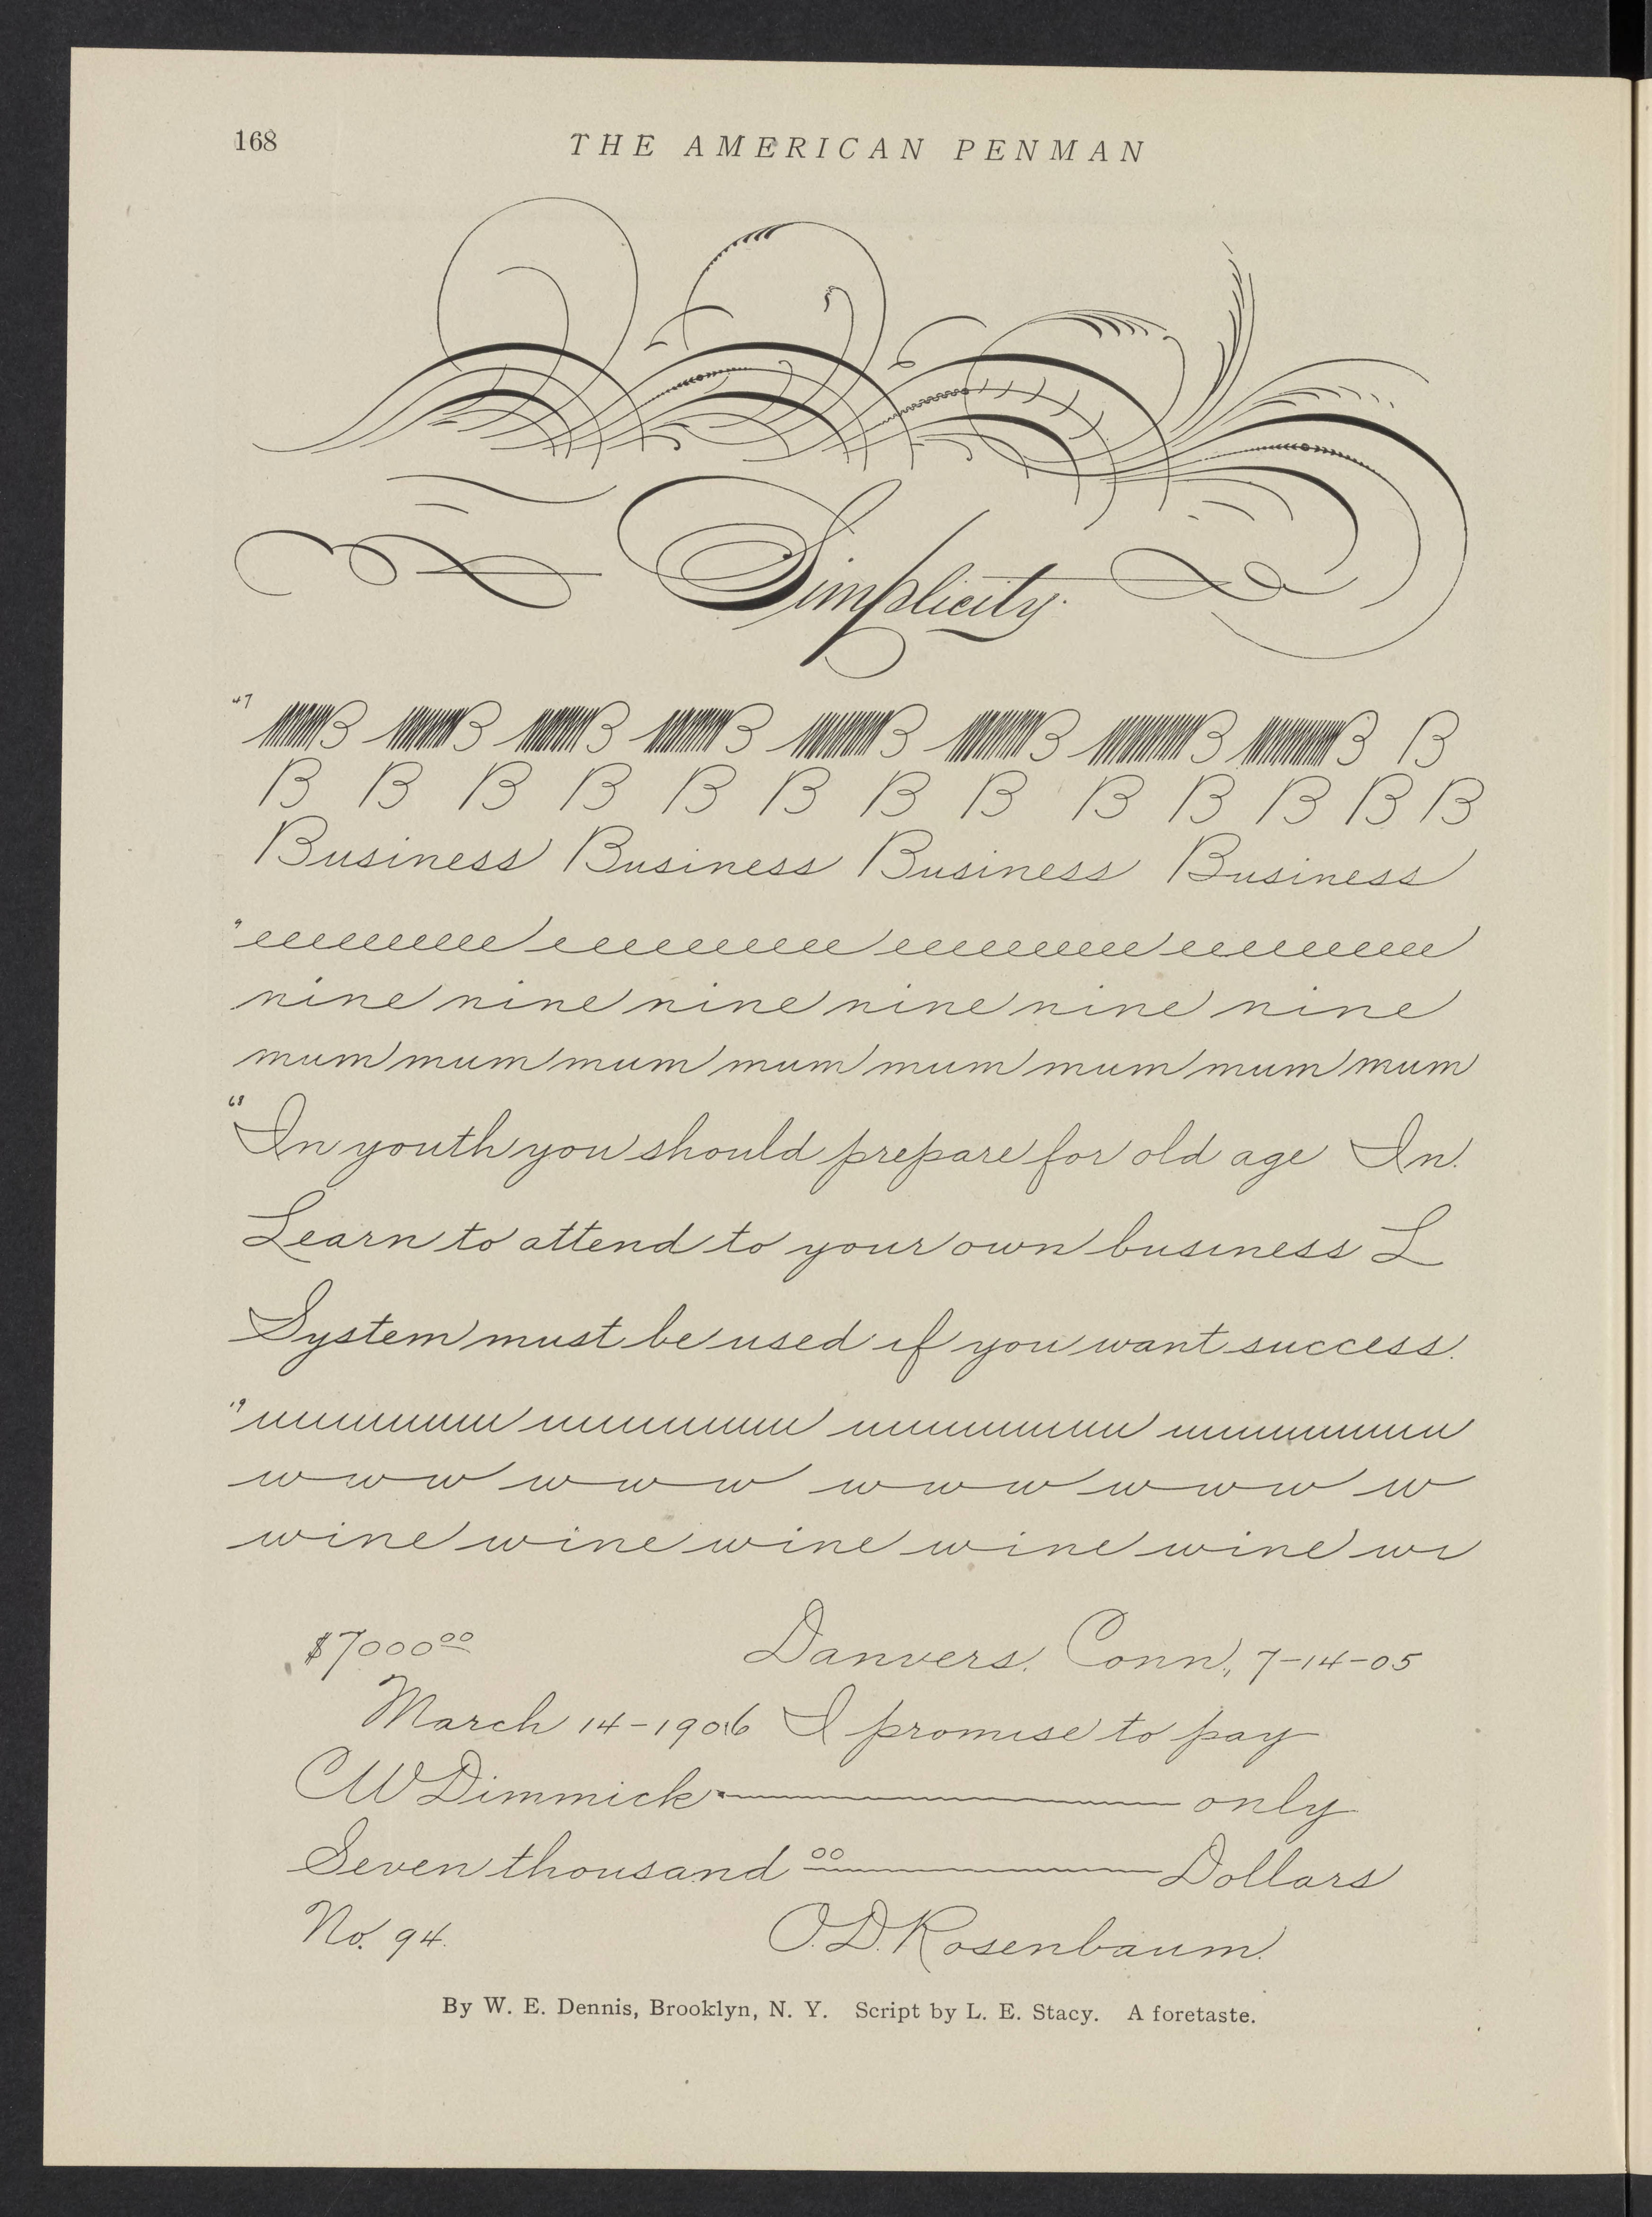 168
THE AMERICAN PENMAN
Simplicity.
47
B B B B B B B B B
B B B B B B B B B B B B B
Business Business Business Business
9
eeeeeeeeee eeeeeeeeee eeeeeeeeee eeeeeeeeee
nine nine nine nine nine nine
mum mum mum mum mum mum mum mum
68
In youth you should prepare for old age In.
Learn to attend to your own business L
System must be used if you want success.
19
uuuuuuu uuuuuuu uuuuuuuu uuuuuuuu
w w w w w w w w w w w w w
wine wine wine wine wine wi
$7000 00 Danvers. Conn., 7-14-05
March 14-1906 I promise to pay
CW Dimmick only
Seven thousand 00 Dollars
No. 94. O.D. Rosenbaum.
By W. E. Dennis, Brooklyn, N. Y. Script by L. E. Stacy. A foretaste.